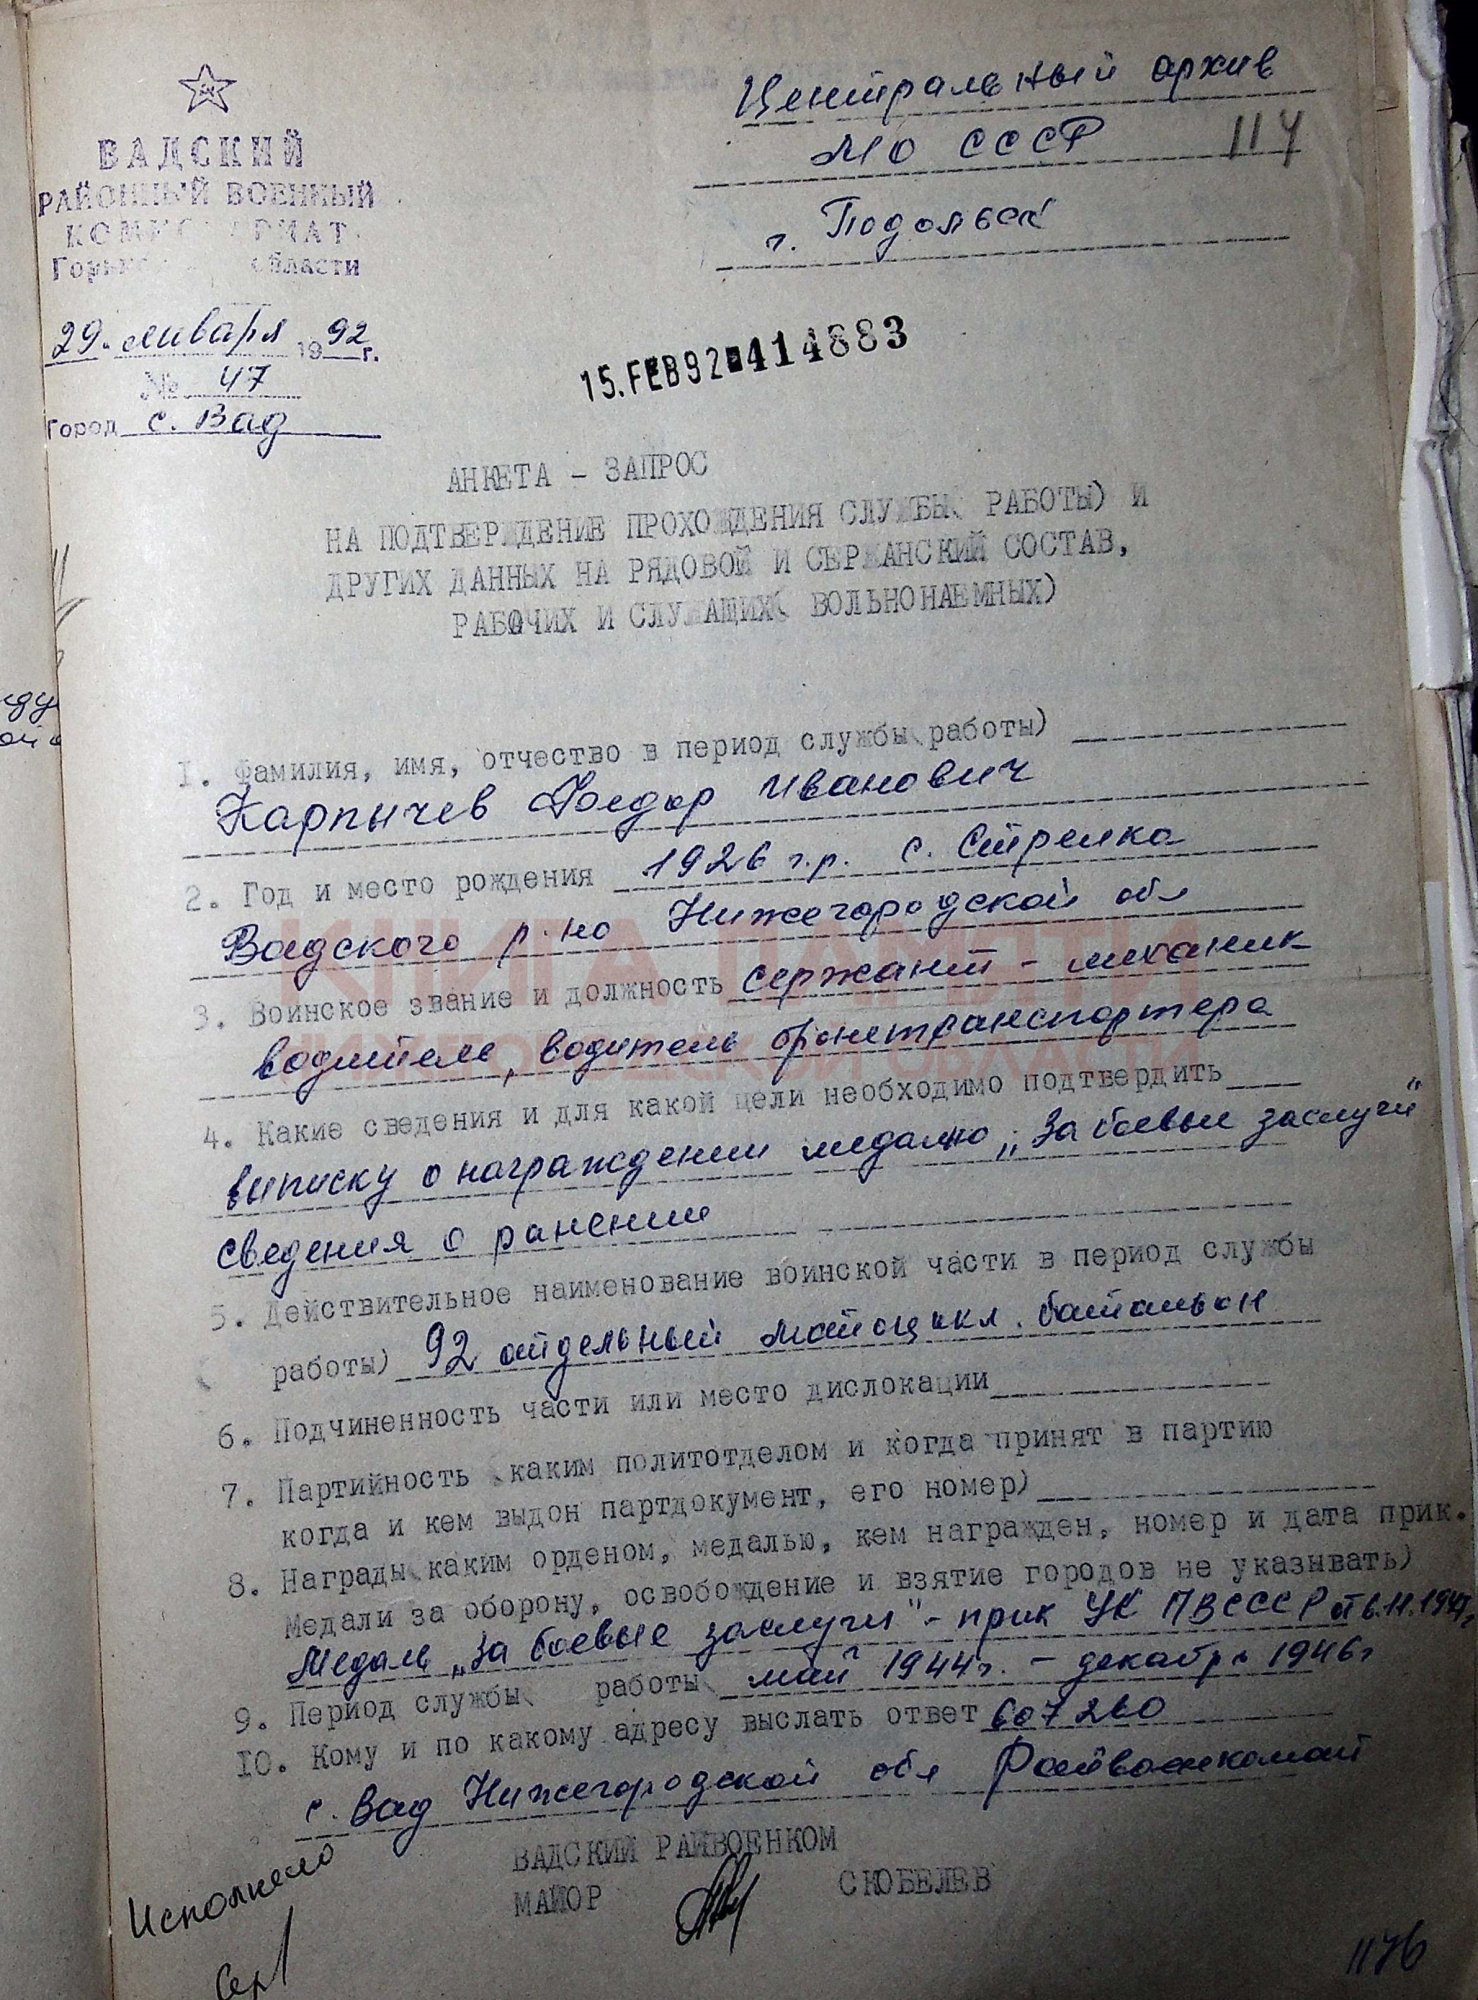 Центральный архив
МО СССР 114
г. Подольск
ВАДСКИЙ
РАЙОННЫЙ ВОЕННЫЙ
КОМИССАРИАТ
Горьковской области
29. января 1992 г.
№ 47
Город с. Вад
15.FEB92 414883
АНКЕТА - ЗАПРОС
НА ПОДТВЕРЖДЕНИЕ ПРОХОЖДЕНИЯ СЛУЖБЫ( РАБОТЫ) И
ДРУГИХ ДАННЫХ НА РЯДОВОЙ И СЕРЖАНСКИЙ СОСТАВ,
РАБОЧИХ И СЛУЖАЩИХ( ВОЛЬНОНАЕМНЫХ)
1. Фамилия, имя, отчество в период службы( работы)
Карпычев Федор Иванович
2. Год и место рождения 1926 г.р. с. Стрелка
Вадского р-но Нижегородской обл
3. Воинское звание и должность сержант - механик
водитель, водитель бронетранспортера
4. Какие сведения и для какой цели необходимо подтвердить
выписку о награждении медалью „За боевые заслуги"
сведения о ранении
5. Действительное наименование воинской части в период службы
( работы) 92 отдельный мотоцикл. батальон
6. Подчиненность части или место дислокации
7. Партийность( каким политотделом и когда принят в партию
когда и кем выдон партдокумент, его номер)
8. Награды( каким орденом, медалью, кем награжден, номер и дата прик.
Медали за оборону, освобождение и взятие городов не указывать)
Медаль „За боевые заслуги" - прик УК ПВСССР от 6.11.1947г
9. Период службы( работы( май 1944г. - декабрь 1946г
10. Кому и по какому адресу выслать ответ 607260
с. Вад Нижегородской обл Райвоенкомат
ВАДСКИЙ РАЙВОЕНКОМ
МАЙОР СКОБЕЛЕВ
Исполнено
1176
КНИГА ПАМЯТИ
НИЖЕГОРОДСКОЙ ОБЛАСТИ